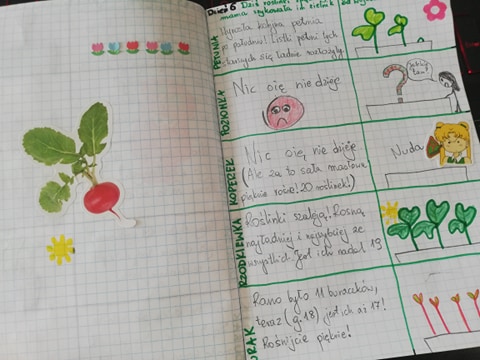 Dzień 6 Dziś
mama
PEWNIA
Wyrosła kolejna pełnia
po południu! Listki pełni tych
starszych się ładnie rozłożyły.
POZIOMKA
Nic się nie dzieje
jesteś
tam?
KOPEREK
Nic się nie dzieje
(Ale za to sała masłowa
pięknie rośnie! 20 roślinek!)
Nuda
RZODKIEWKA
Roślinki szaleją! Rosną
najładniej i najszybciej ze
wszystkich. Jest ich nadal 19
Rano było 11 buraczków,
teraz (g.18) jest ich aż 17!
Rośnijcie pięknie!